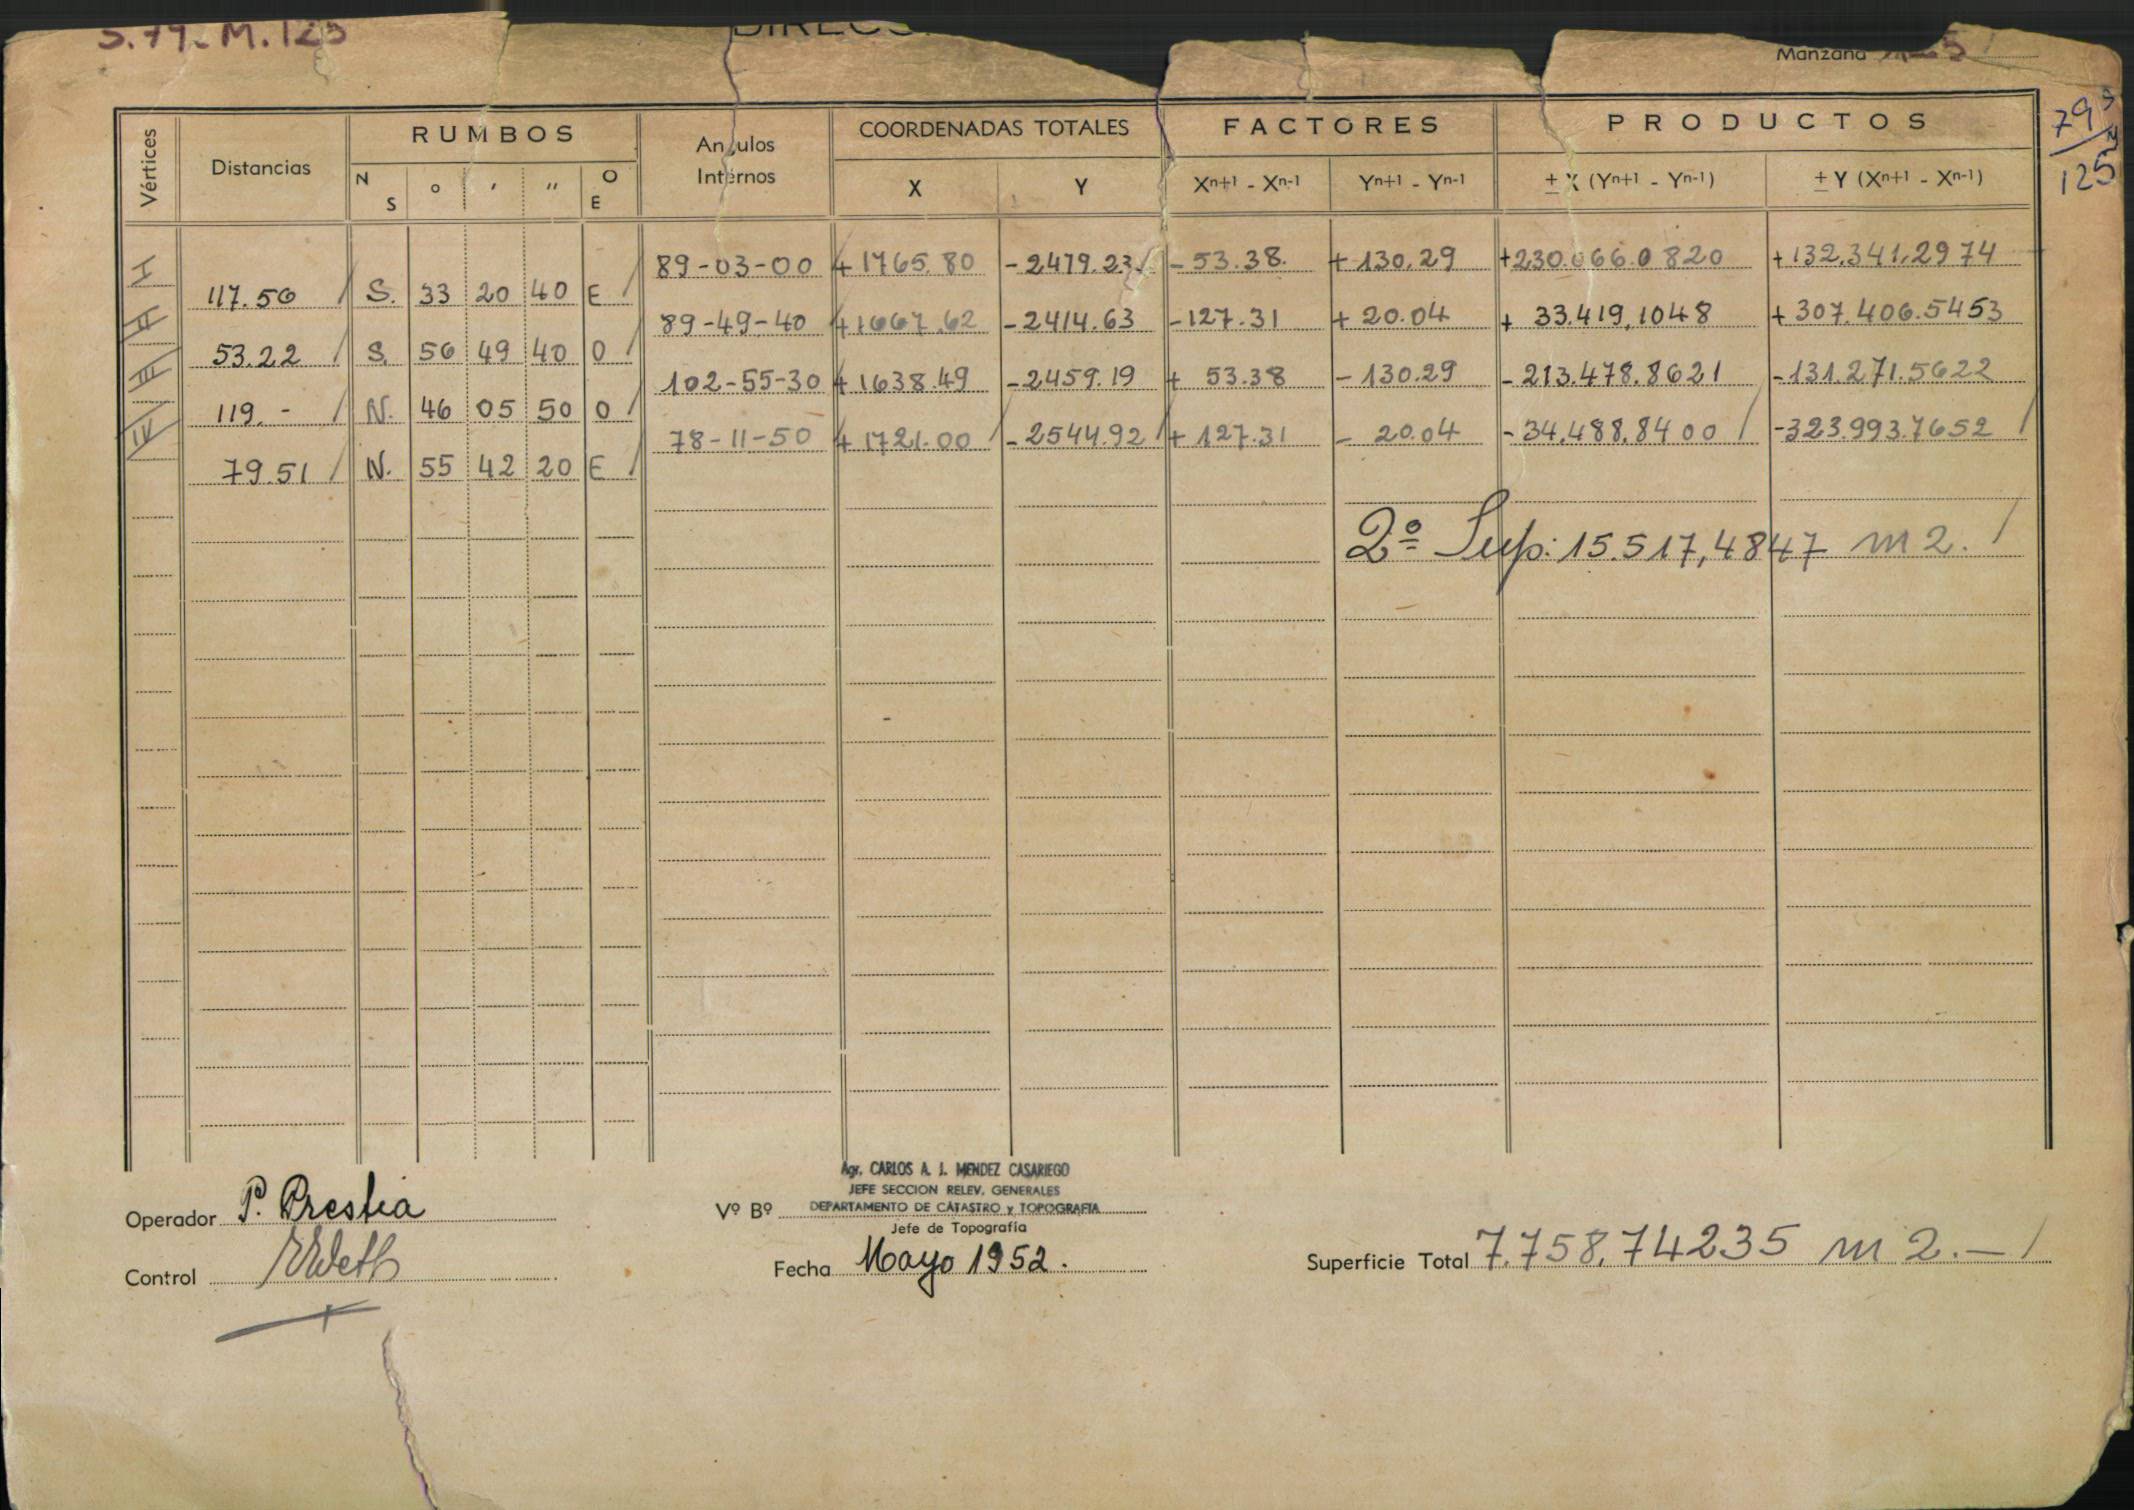 S.79. M.125
DIRECC
Manzana 125
79
125
Vértices
Distancias
RUMBOS
N S
° ' "
O E
Angulos Internos
COORDENADAS TOTALES
X Y
FACTORES
Xn+1 - Xn-1 Yn+1 - Yn-1
PRODUCTOS
± X (Yn+1 - Yn-1) ± Y (Xn+1 - Xn-1)
I 89-03-00 +1765.80 -2479.23 -53.38. +130.29 +230.066.0820 +132.341.2974
117.56 S. 33 20 40 E
II 89-49-40 +1667.62 -2414.63 -127.31 +20.04 + 33.419,1048 +307.406.5453
53.22 S. 56 49 40 O
III 102-55-30 +1638.49 -2459.19 + 53.38 -130.29 -213.478.8621 -131.271.5622
119.- N. 46 05 50 O
IV 78-11-50 +1721.00 -2544.92 +127.31 - 20.04 -34.488.8400 -323.993.7652
79.51 N. 55 42 20 E
2º Sup: 15.517,4847 m2.
Agr. CARLOS A. J. MENDEZ CASARIEGO
JEFE SECCION RELEV. GENERALES
DEPARTAMENTO DE CATASTRO y TOPOGRAFIA
Operador P. Prestia
Vº Bº
Jefe de Topografía
Control
Fecha Mayo 1952.
Superficie Total 7.758,74235 m2.-